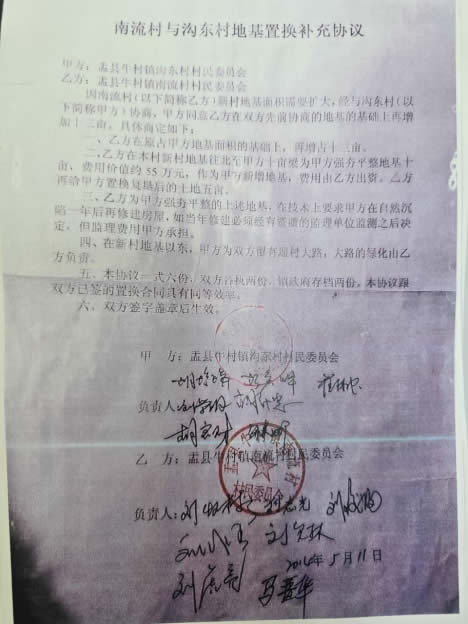 南流村与沟东村地基置换补充协议
甲方：盂县牛村镇沟东村村民委员会
乙方：盂县牛村镇南流村村民委员会
因南流村（以下简称乙方）新村地基面积需要扩大，经与沟东村（以
下简称甲方）协商，甲方同意乙方在双方先前协商的地基的基础上再增
加十三亩。具体商定如下：
一、乙方在原占甲方地基面积的基础上，再增占十三亩。
二、乙方在本村新村地基往北至甲方十亩梁为甲方强夯平整地基十
亩，费用价值约 55 万元，作为甲方新增地基，费用由乙方出资。乙方
再给甲方置换复垦后的土地五亩。
三、乙方为甲方强夯平整的上述地基，在技术上要求甲方在自然沉
陷一年后再修建房屋，如当年修建必须经有资质的监理单位监测之后决
定，但监理费用甲方承担。
四、在新村地基以东，甲方为双方留有通村大路，大路的绿化由乙
方负责。
五、本协议一式六份，双方各执两份，镇政府存档两份，本协议跟
双方已签的置换合同具有同等效率。
六、双方签字盖章后生效。
甲 方：盂县牛村镇沟东村村民委员会
负责人：
乙 方：盂县牛村镇南流村村民委员会
负责人：
5月11日